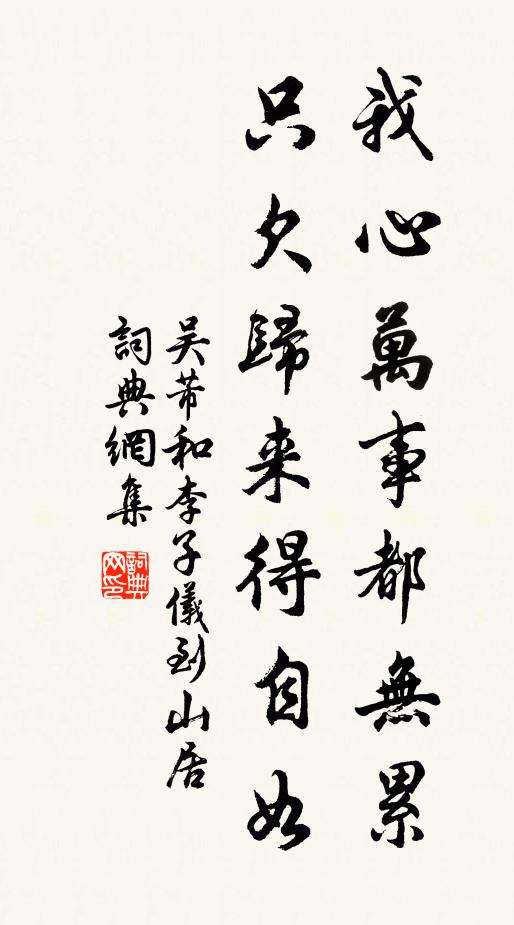 我心萬事都無累
只欠歸来得自如
吴芾和李子儀到山居
詞典網集
詞典網印